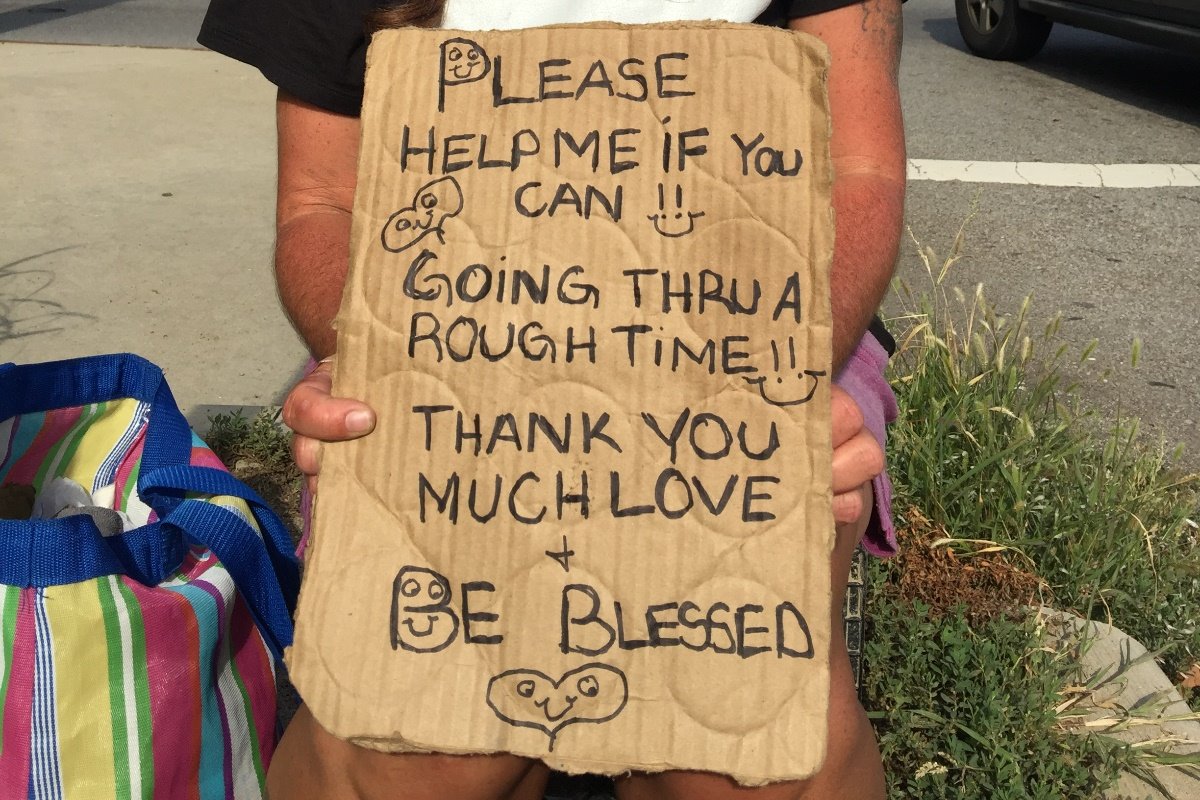 PLEASE
HELP ME iF You
CAN !!
GOiNG THRU A
ROUGH TiME!!
THANK YOU
MUCH LOVE
+
BE BLESSED